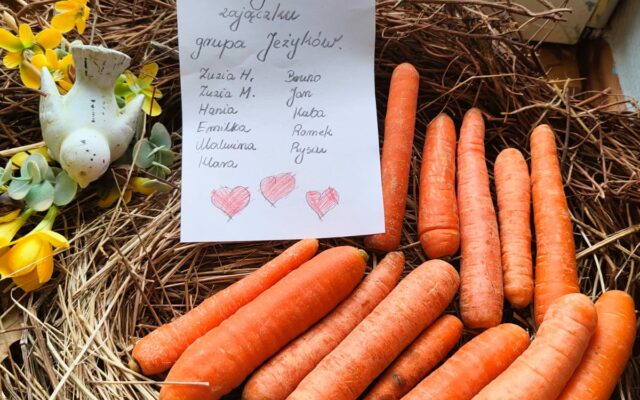 zajączku
grupa Jeżyków.
Zuzia H.
Zuzia M.
Hania
Emilka
Malwina
Klara
Bruno
Jan
Kuba
Romek
Rysiu